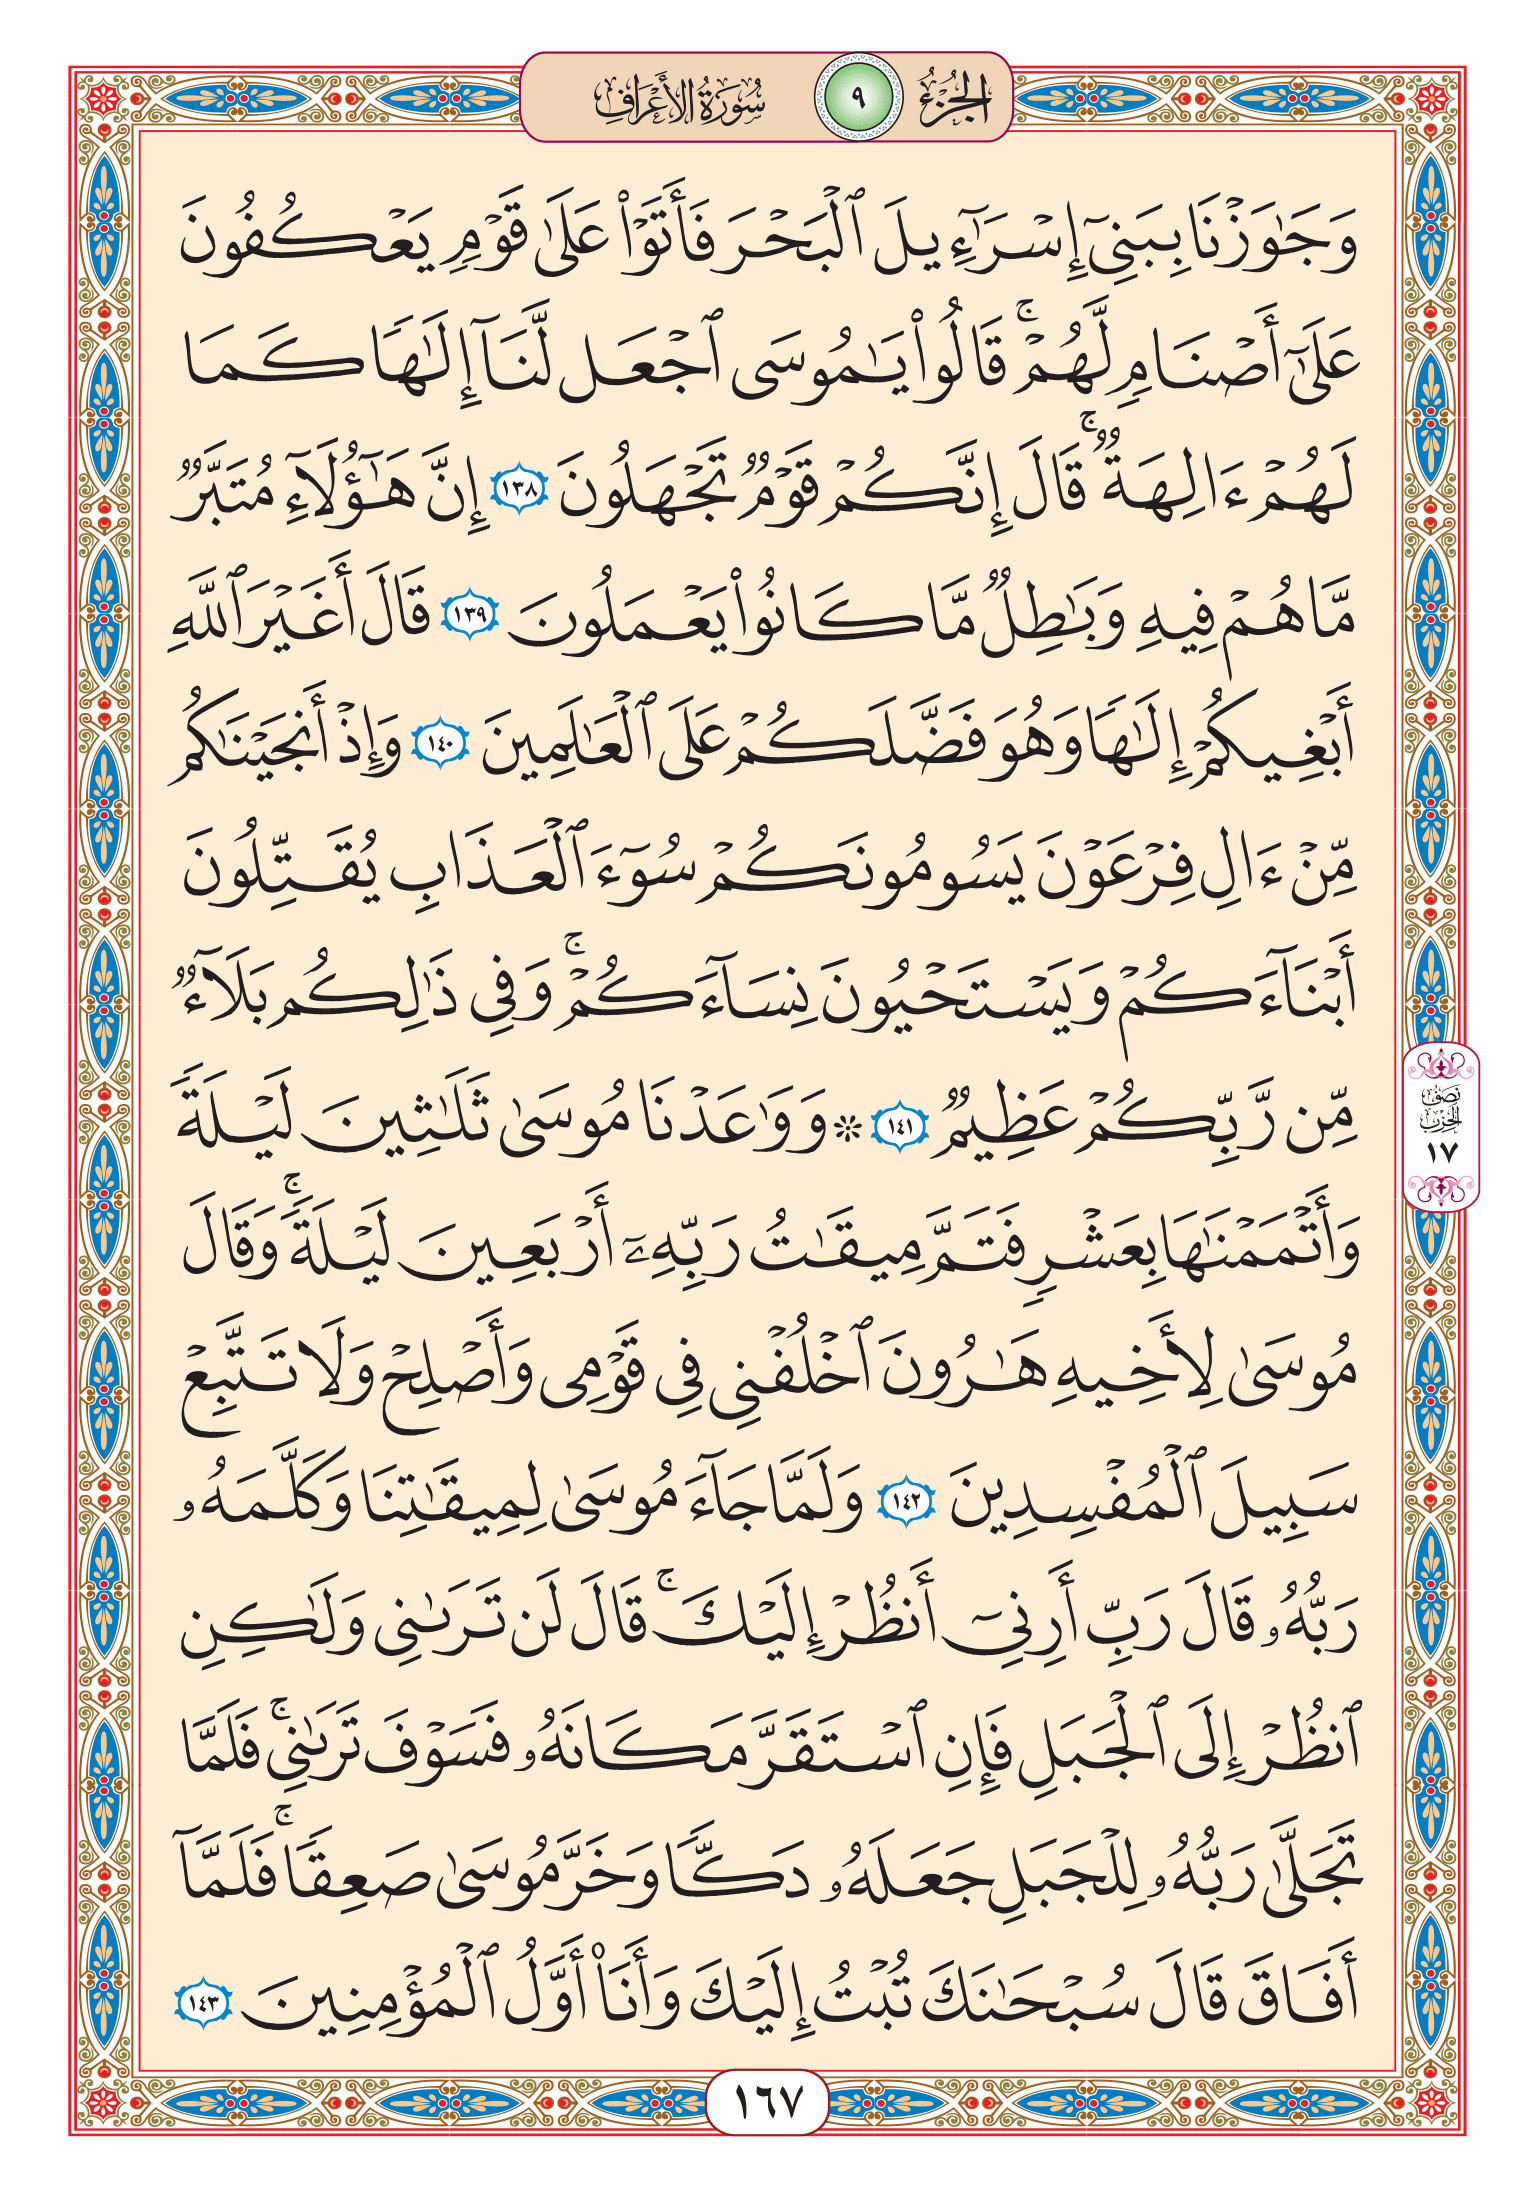 الجزء ٩ سورة الأعراف
وَجَٰوَزْنَا بِبَنِىٓ إِسْرَٰٓءِيلَ ٱلْبَحْرَ فَأَتَوْا۟ عَلَىٰ قَوْمٍ يَعْكُفُونَ
عَلَىٰٓ أَصْنَامٍ لَّهُمْ ۚ قَالُوا۟ يَٰمُوسَى ٱجْعَل لَّنَآ إِلَٰهًا كَمَا
لَهُمْ ءَالِهَةٌ ۚ قَالَ إِنَّكُمْ قَوْمٌ تَجْهَلُونَ ١٣٨ إِنَّ هَٰٓؤُلَآءِ مُتَبَّرٌ
مَّا هُمْ فِيهِ وَبَٰطِلٌ مَّا كَانُوا۟ يَعْمَلُونَ ١٣٩ قَالَ أَغَيْرَ ٱللَّهِ
أَبْغِيكُمْ إِلَٰهًا وَهُوَ فَضَّلَكُمْ عَلَى ٱلْعَٰلَمِينَ ١٤٠ وَإِذْ أَنجَيْنَٰكُم
مِّنْ ءَالِ فِرْعَوْنَ يَسُومُونَكُمْ سُوٓءَ ٱلْعَذَابِ يُقَتِّلُونَ
أَبْنَآءَكُمْ وَيَسْتَحْيُونَ نِسَآءَكُمْ ۚ وَفِى ذَٰلِكُم بَلَآءٌ
مِّن رَّبِّكُمْ عَظِيمٌ ١٤١ ۞ وَوَٰعَدْنَا مُوسَىٰ ثَلَٰثِينَ لَيْلَةً
وَأَتْمَمْنَٰهَا بِعَشْرٍ فَتَمَّ مِيقَٰتُ رَبِّهِۦٓ أَرْبَعِينَ لَيْلَةً ۚ وَقَالَ
مُوسَىٰ لِأَخِيهِ هَٰرُونَ ٱخْلُفْنِى فِى قَوْمِى وَأَصْلِحْ وَلَا تَتَّبِعْ
سَبِيلَ ٱلْمُفْسِدِينَ ١٤٢ وَلَمَّا جَآءَ مُوسَىٰ لِمِيقَٰتِنَا وَكَلَّمَهُۥ
رَبُّهُۥ قَالَ رَبِّ أَرِنِىٓ أَنظُرْ إِلَيْكَ ۚ قَالَ لَن تَرَىٰنِى وَلَٰكِنِ
ٱنظُرْ إِلَى ٱلْجَبَلِ فَإِنِ ٱسْتَقَرَّ مَكَانَهُۥ فَسَوْفَ تَرَىٰنِى ۚ فَلَمَّا
تَجَلَّىٰ رَبُّهُۥ لِلْجَبَلِ جَعَلَهُۥ دَكًّا وَخَرَّ مُوسَىٰ صَعِقًا ۚ فَلَمَّآ
أَفَاقَ قَالَ سُبْحَٰنَكَ تُبْتُ إِلَيْكَ وَأَنَا۠ أَوَّلُ ٱلْمُؤْمِنِينَ ١٤٣
نصف
الحزب
١٧
١٦٧